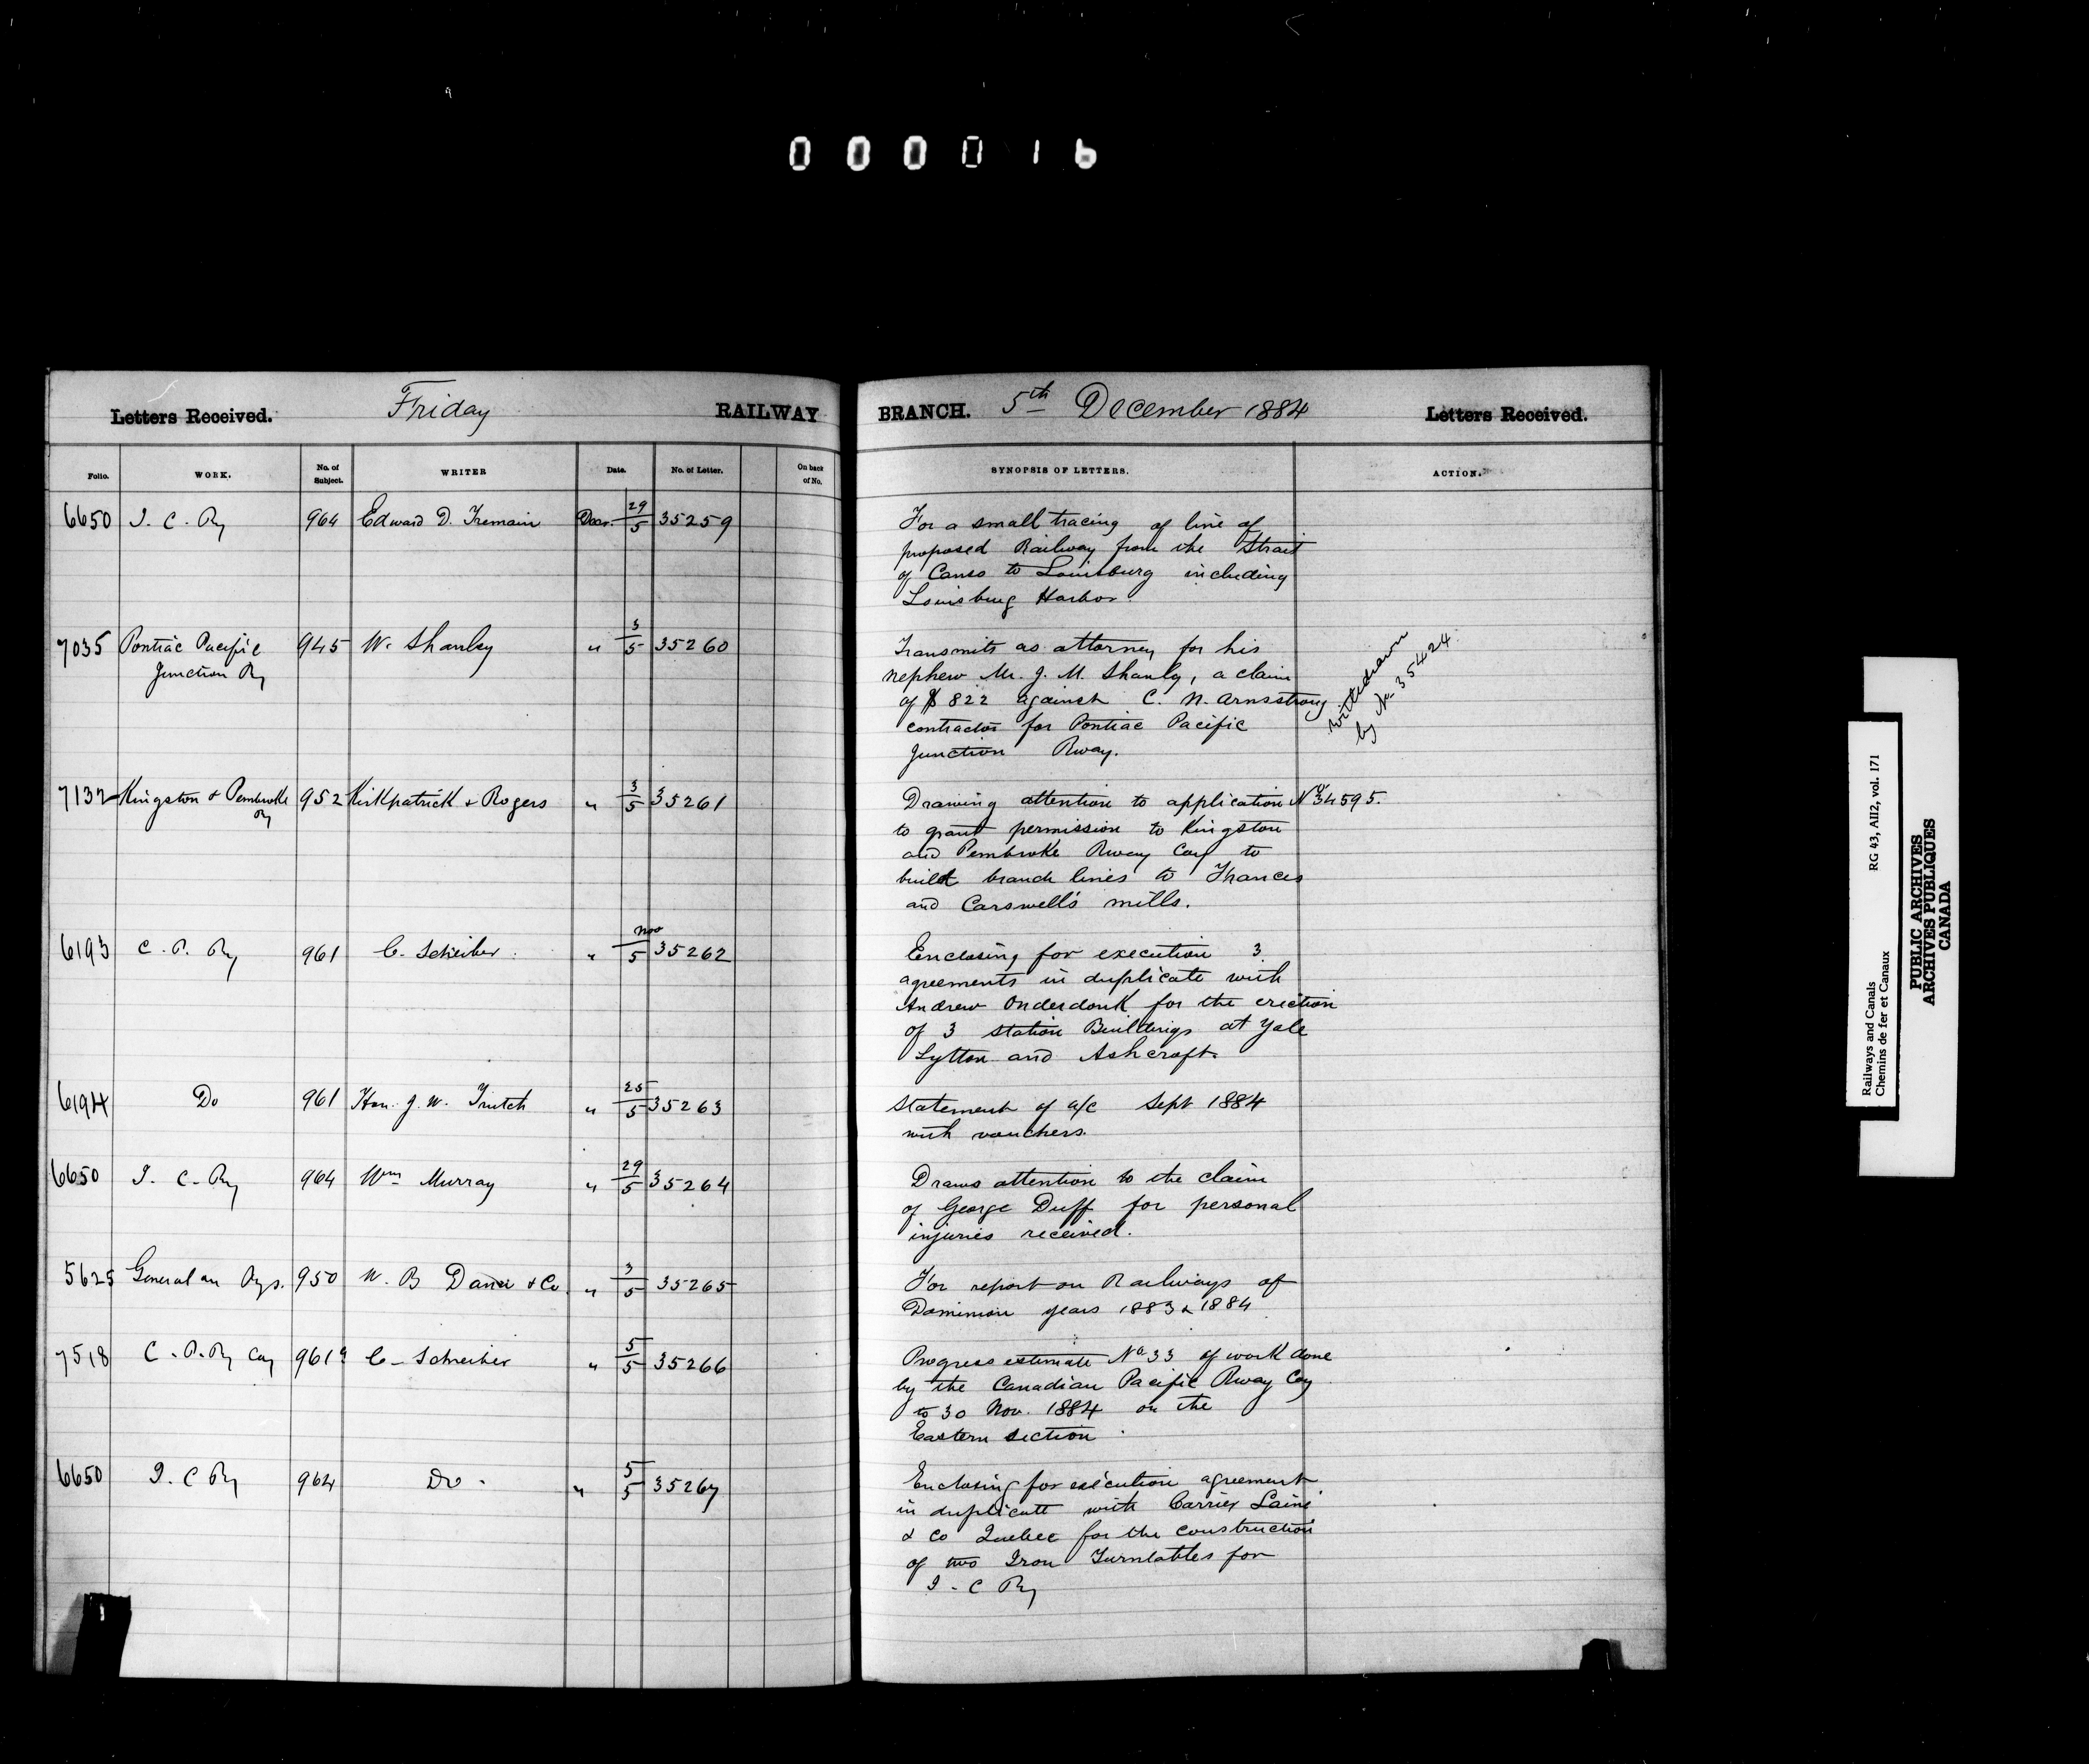 000016
Letters Received. Friday RAILWAY BRANCH. 5th December 1884 Letters Received.
Folio. WORK. No. of Subject. WRITER Date. No. of Letter. On back of No. SYNOPSIS OF LETTERS. ACTION.
6650 I. C. Ry 964 Edward D. Tremain Decr. 29/5 35259 For a small tracing of line of
proposed Railway from the Strait
of Canso to Louisburg including
Louisburg Harbor.
7035 Pontiac Pacific 945 W. Shanly " 3/5 35260 Transmits as attorney for his
Junction Ry nephew Mr. J. M. Shanly, a claim
of $822 against C. N. Armstrong
contractor for Pontiac Pacific
Junction Rway.
withdrawn
by No. 35424.
7137 Kingston & Pembroke 952 Kirkpatrick & Rogers " 3/5 35261 Drawing attention to application No 34595.
Ry to grant permission to Kingston
and Pembroke Rway Coy to
build branch lines to
and Carswell's mills.
6193 C. P. Ry 961 C. Schreiber " Nov/5 35262 Enclosing for execution 3
agreements in duplicate with
Andrew Onderdonk for the erection
of 3 station Buildings at Yale
Lytton and Ashcroft.
6194 Do 961 Hon. J. W. Trutch " 25/5 35263 Statement of a/c Sept 1884
with vouchers.
6650 I. C. Ry 964 Wm Murray " 29/5 35264 Draws attention to the claim
of George Duff for personal
injuries received.
5625 General on Rys. 950 W. B & Co. " 3/5 35265 For report on Railways of
Dominion years 1883 & 1884
7518 C. P. Ry Coy 961a C. Schreiber " 5/5 35266 Progress estimate No 33 of work done
by the Canadian Pacific Rway Coy
to 30 Nov. 1884 on the
Eastern Section
6650 I. C Ry 964 Do. " 5/5 35267 Enclosing for execution agreement
in duplicate with Carrier Lainé
& Co Quebec for the construction
of two Iron Turntables for
I. C Ry
Railways and Canals RG 43, AII2, vol. 171
Chemins de fer et Canaux
PUBLIC ARCHIVES
ARCHIVES PUBLIQUES
CANADA